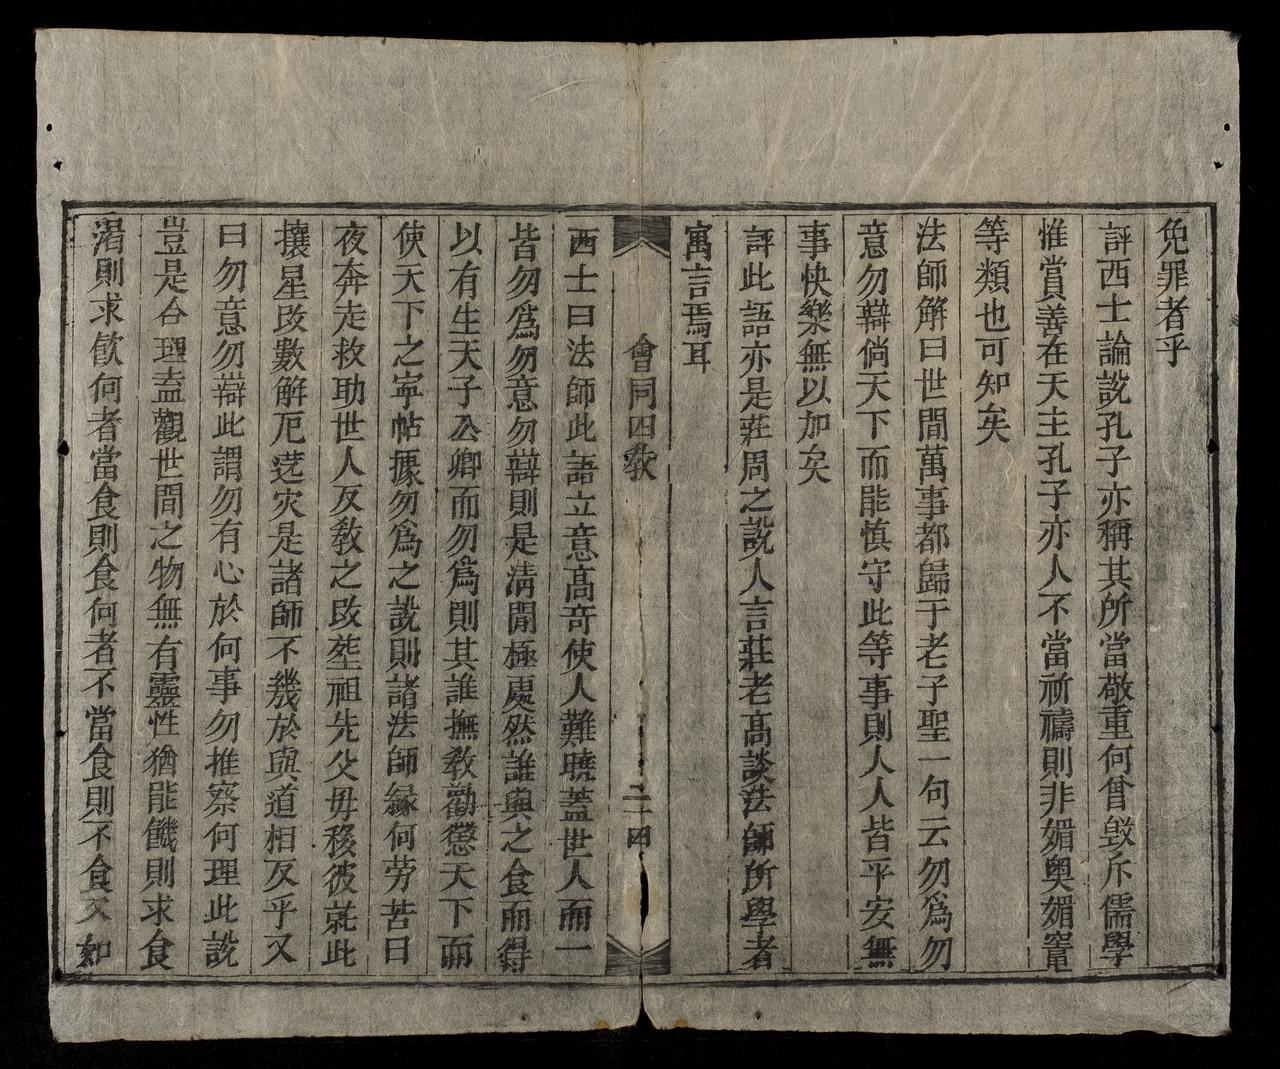 免罪者乎
評西士論說孔子亦稱其所當敬重何曾毀斥儒學
惟賞善在天主孔子亦人不當祈禱則非媚奧媚竈
等類也可知矣
法師解曰世間萬事都歸于老子聖一句云勿爲勿
意勿辯倘天下而能慎守此等事則人人皆平安無
事快樂無以加矣
評此語亦是莊周之說人言莊老高談法師所學者
寓言焉耳
會同四教
二十四
西士曰法師此語立意高竒使人難曉蓋世人而一
皆勿爲勿意勿辯則是清閒極處然誰與之食而得
以有生天子公卿而勿爲則其誰撫教勸懲天下而
使天下之寧帖據勿爲之說則諸法師緣何劳苦日
夜奔走救助世人反教之改塟祖先父母移彼就此
攘星改數解厄送灾是諸師不幾於與道相反乎又
曰勿意勿辯此謂勿有心於何事勿推察何理此說
豈是合理盍觀世間之物無有靈性猶能饑則求食
渴則求飲何者當食則食何者不當食則不食又如